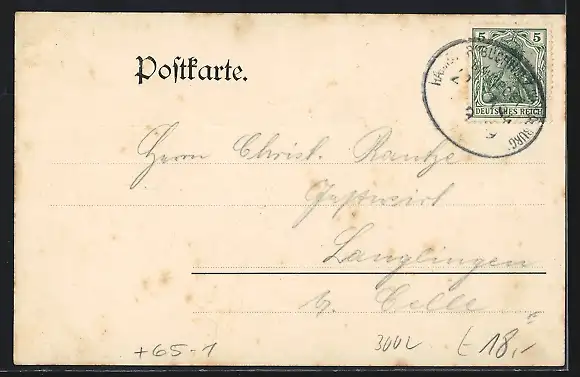 5 5
DEUTSCHES REICH
Postkarte.
Herrn Christ.
Gastwirt
Langlingen
b. Celle
+65-1 3002 £ 18,-